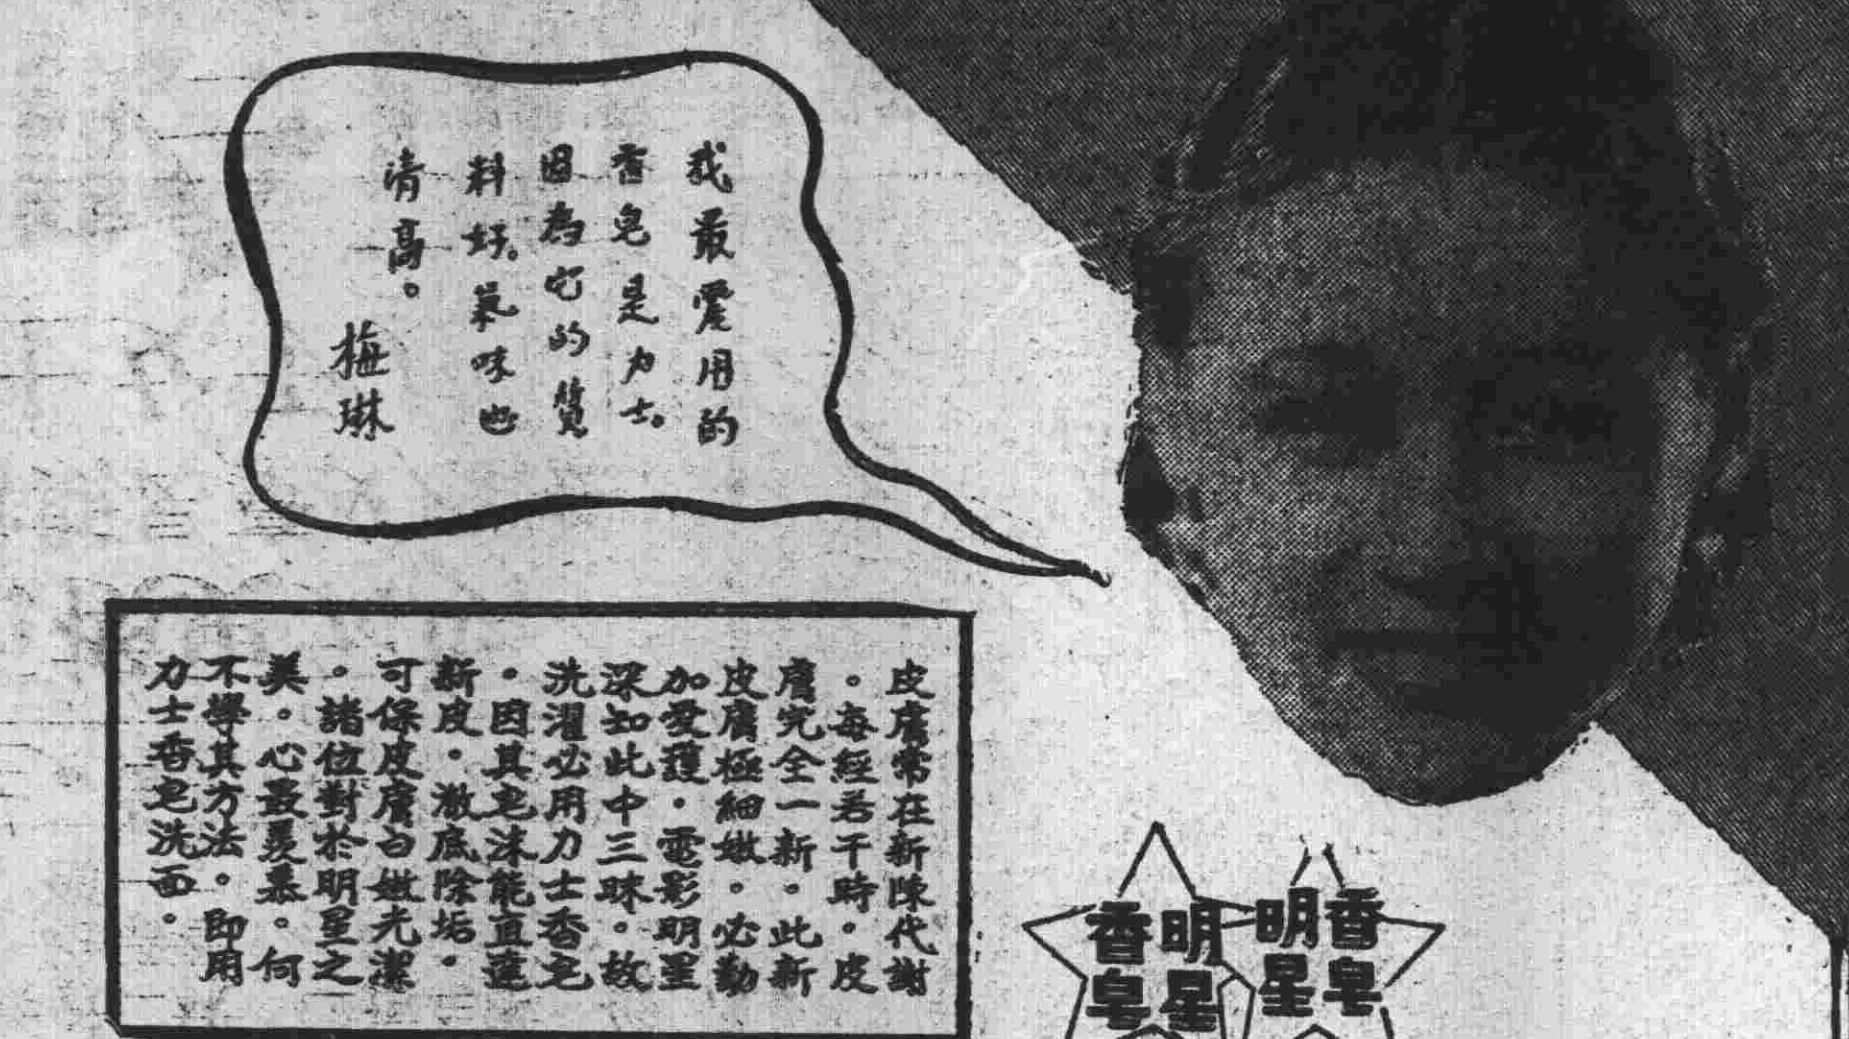 我最愛用的
香皂是力士。
因為它的質
料好。氣味也
清高。
梅琳
皮膚常在新陳代謝
。每經若干時。皮
膚完全一新。此新
皮膚極細嫩。必勤
加愛護。電影明星
深知此中三昧。故
洗濯必用力士香皂
。因其皂沫能直達
新皮。澈底除垢。
可保皮膚白嫩光潔
。諸位對於明星之
美。心最羨慕。何
不學其方法。即用
力士香皂洗面。
明星
香皂
香皂
明星